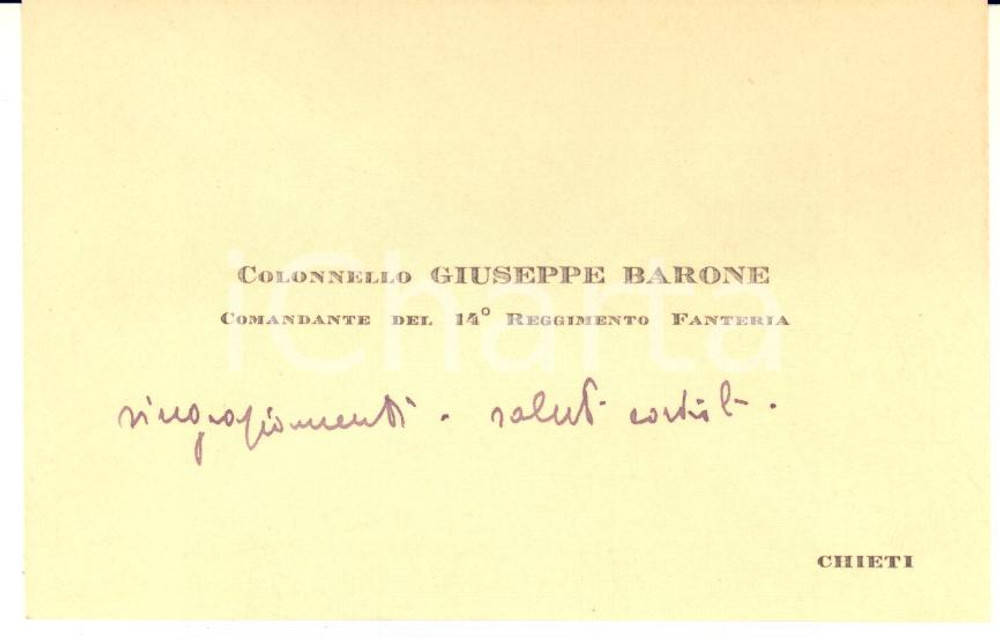 Colonnello GIUSEPPE BARONE
Comandante del 14° Reggimento Fanteria
iCharta
ringraziamenti. saluti cordiali.
CHIETI